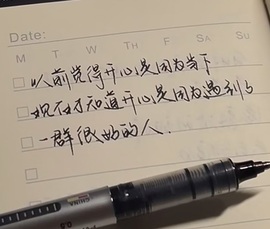 Date:
M T W TH F SA SU
以前觉得开心是因为当下
现在才知道开心是因为遇到了
一群很好的人.